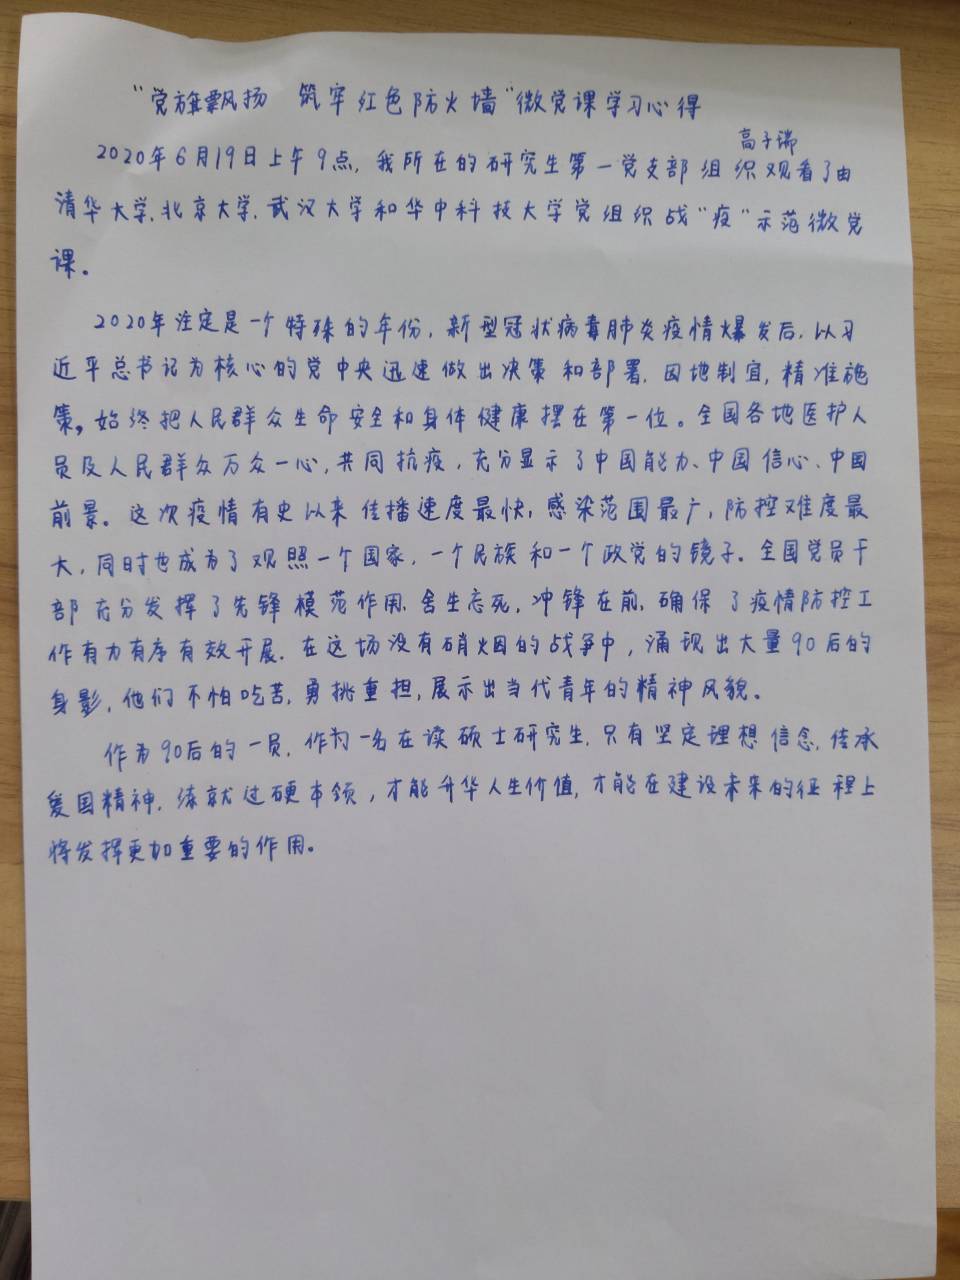 “党旗飘扬 筑牢红色防火墙”微党课学习心得
高子瑞
2020年6月19日上午9点，我所在的研究生第一党支部组织观看了由
清华大学、北京大学、武汉大学和华中科技大学党组织战“疫”示范微党
课。
2020年注定是一个特殊的年份，新型冠状病毒肺炎疫情爆发后，以习
近平总书记为核心的党中央迅速做出决策和部署，因地制宜，精准施
策，始终把人民群众生命安全和身体健康摆在第一位。全国各地医护人
员及人民群众万众一心，共同抗疫，充分显示了中国能力、中国信心、中国
前景。这次疫情有史以来传播速度最快，感染范围最广，防控难度最
大，同时也成为了观照一个国家，一个民族和一个政党的镜子。全国党员干
部充分发挥了先锋模范作用，舍生忘死，冲锋在前，确保了疫情防控工
作有力有序有效开展。在这场没有硝烟的战争中，涌现出大量90后的
身影，他们不怕吃苦，勇挑重担，展示出当代青年的精神风貌。
作为90后的一员，作为一名在读硕士研究生，只有坚定理想信念，传承
爱国精神，练就过硬本领，才能升华人生价值，才能在建设未来的征程上
将发挥更加重要的作用。